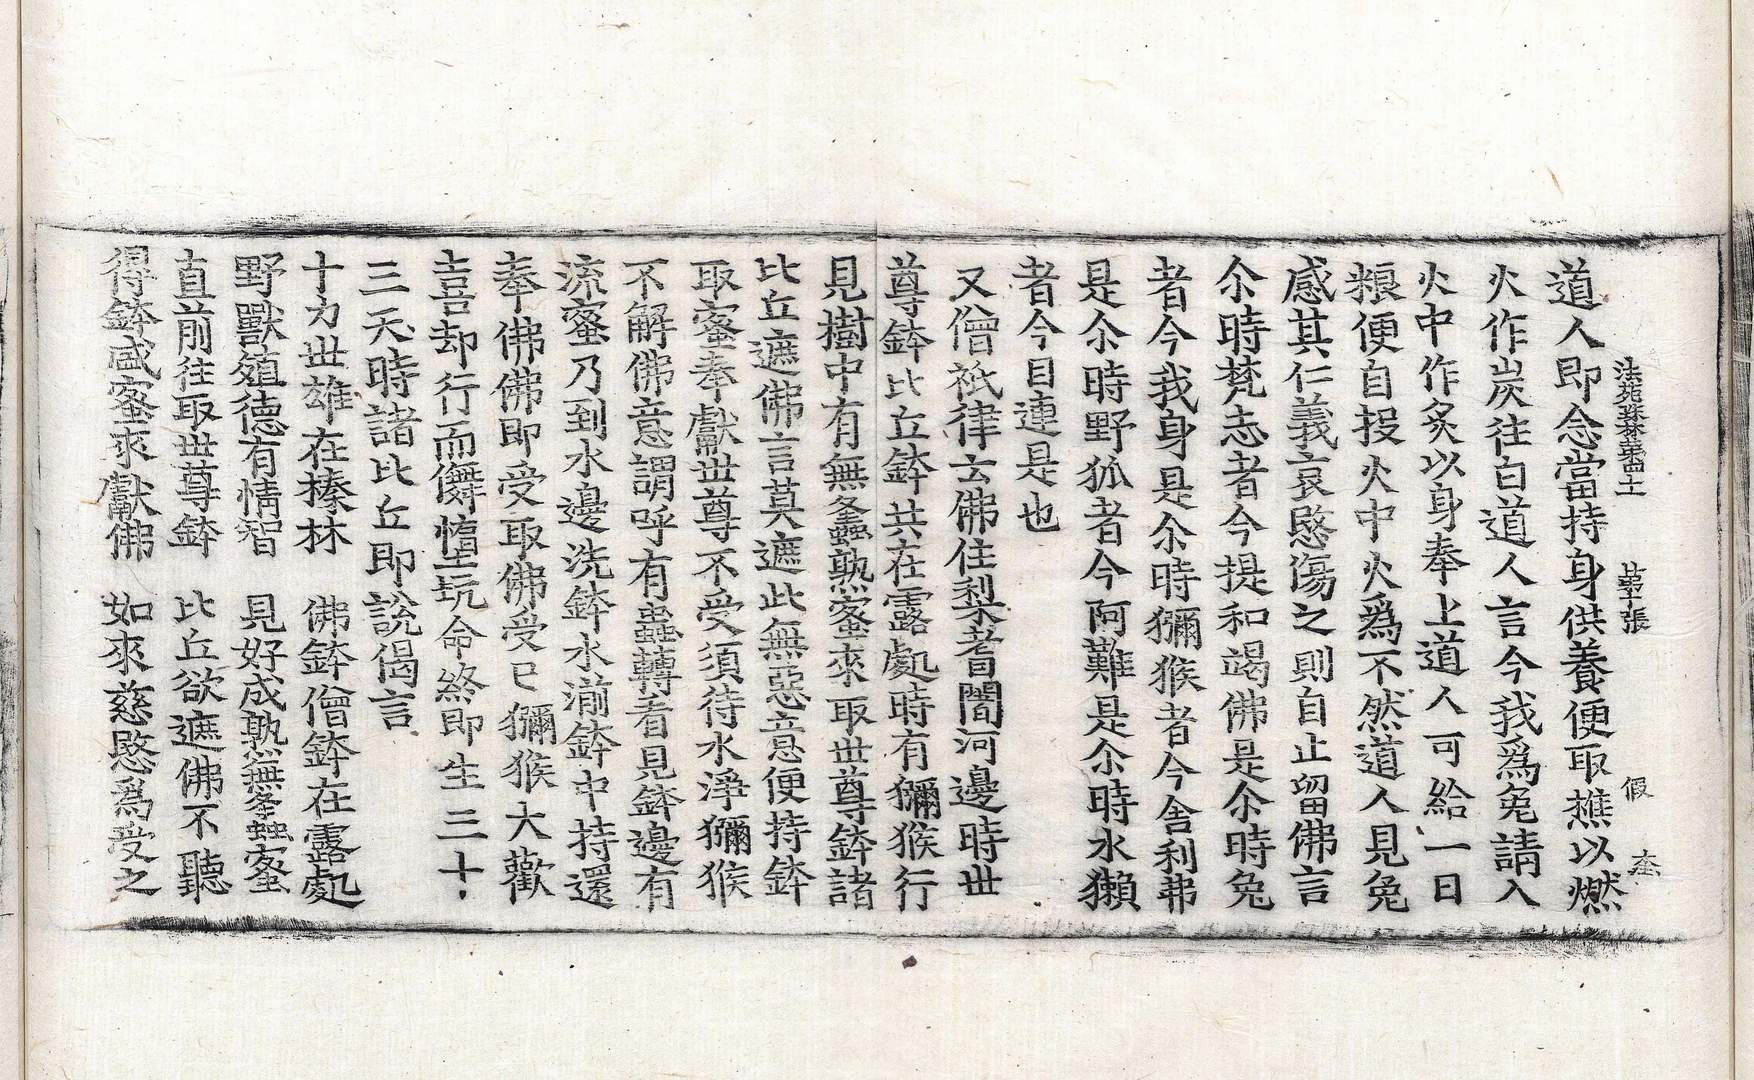 法苑珠林卷第四十一 第二十張 假 
道人即念當持身供養便取樵以燃
火作炭往白道人言今我爲兔請入
火中作炙以身奉上道人可給一日
粮便自投火中火爲不然道人見兔
感其仁義哀愍傷之則自止留佛言
尒時梵志者今提和竭佛是尒時兔
者今我身是尒時獼猴者今舍利弗
是尒時野狐者今阿難是尒時水獺
者今目連是也
又僧祇律云佛住梨耆闍河邊時世
尊鉢比丘鉢共在露處時有獼猴行
見樹中有無䖝熟蜜來取世尊鉢諸
比丘遮佛言莫遮此無惡意便持鉢
取蜜奉獻世尊不受須待水淨獼猴
不解佛意謂呼有蟲轉看見鉢邊有
流蜜乃到水邊洗鉢水湔鉢中持還
奉佛佛即受取佛受已獼猴大歡
喜却行而儛墮坑命終即生三十
三天時諸比丘即說偈言
十力世雄在榛林 佛鉢僧鉢在露處
野獸殖德有情智 見好成熟無䖝蜜
直前往取世尊鉢 比丘欲遮佛不聽
得鉢盛蜜來獻佛 如來慈愍爲受之